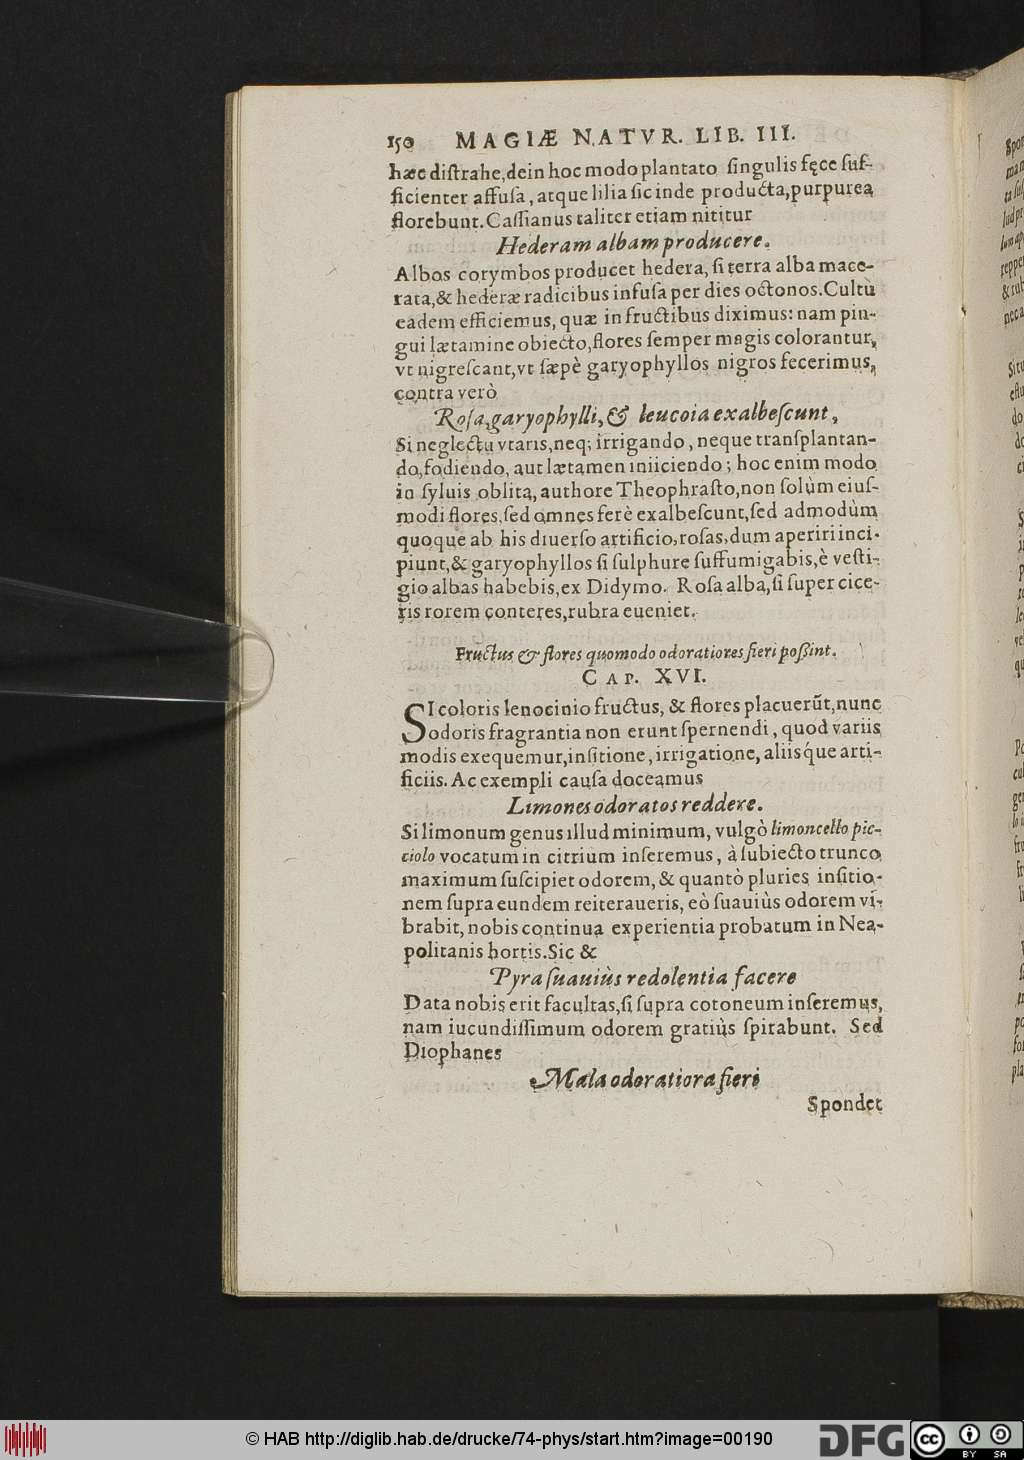 150 MAGIÆ NATVR. LIB. III.
hæc diſtrahe, dein hoc modo plantato ſingulis fęce ſuf-
ficienter affuſa, atque lilia ſic inde producta, purpurea
florebunt. Caſſianus taliter etiam nititur
Hederam albam producere.
Albos corymbos producet hedera, ſi terra alba mace-
rata, & hederæ radicibus infuſa per dies octonos. Cultù
eadem efficiemus, quæ in fructibus diximus: nam pin-
gui lætamine obiecto, flores ſemper magis colorantur,
vt nigreſcant, vt ſæpè garyophyllos nigros fecerimus,
contra verò
Roſa, garyophylli, & leucoia exalbeſcunt,
Si neglectu vtaris, neq; irrigando, neque tranſplantan-
do, fodiendo, aut lætamen iniiciendo; hoc enim modo
in ſyluis oblita, authore Theophraſto, non ſolùm eiuſ-
modi flores, ſed omnes ferè exalbeſcunt, ſed admodùm
quoque ab his diuerſo artificio, roſas, dum aperiri inci-
piunt, & garyophyllos ſi ſulphure ſuffumigabis, è veſti-
gio albas habebis, ex Didymo. Roſa alba, ſi ſuper cice-
ris rorem conteres, rubra eueniet.
Fructus & flores quomodo odoratiores fieri poßint.
CAP. XVI.
SI coloris lenocinio fructus, & flores placuerũt, nunc
odoris fragrantia non erunt ſpernendi, quod variis
modis exequemur, inſitione, irrigatione, aliisq́ue arti-
ficiis. Ac exempli cauſa doceamus
Limones odoratos reddere.
Si limonum genus illud minimum, vulgò limoncello pic-
ciolo vocatum in citrium inſeremus, à ſubiecto trunco
maximum ſuſcipiet odorem, & quantò pluries inſitio-
nem ſupra eundem reiteraueris, eò ſuauiùs odorem vi-
brabit, nobis continua experientia probatum in Nea-
politanis hortis. Sic &
Pyra ſuauiùs redolentia facere
Data nobis erit facultas, ſi ſupra cotoneum inſeremus,
nam iucundiſſimum odorem gratiùs ſpirabunt. Sed
Diophanes
Mala odoratiora fieri
Spondet
© HAB http://diglib.hab.de/drucke/74-phys/start.htm?image=00190
DFG
cc BY SA